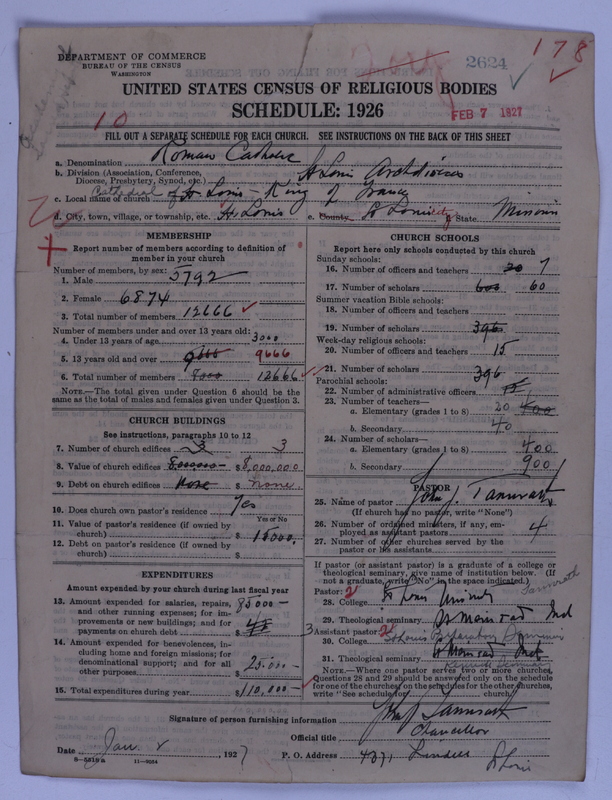 DEPARTMENT OF COMMERCE
BUREAU OF THE CENSUS
WASHINGTON
2624
178
UNITED STATES CENSUS OF RELIGIOUS BODIES
SCHEDULE: 1926
FEB 7 1927
10
FILL OUT A SEPARATE SCHEDULE FOR EACH CHURCH. SEE INSTRUCTIONS ON THE BACK OF THIS SHEET
a. Denomination Roman Catholic
b. Division (Association, Conference, Diocese, Presbytery, Synod, etc.) St Louis Archdiocese
c. Local name of church Cathedral of St Louis - King of France
d. City, town, village, or township, etc. St Louis e. County St Louis City f. State Missouri
MEMBERSHIP
Report number of members according to definition of
member in your church
Number of members, by sex:
1. Male 5792
2. Female 6874
3. Total number of members 12666
Number of members under and over 13 years old:
4. Under 13 years of age 3000
5. 13 years old and over 9000 9666
6. Total number of members 12666
NOTE.—The total given under Question 6 should be the
same as the total of males and females given under Question 3.
CHURCH BUILDINGS
See instructions, paragraphs 10 to 12
7. Number of church edifices 3 3
8. Value of church edifices $8,000,000
9. Debt on church edifices None $ None
10. Does church own pastor's residence? Yes
Yes or No
11. Value of pastor's residence (if owned by
church) $ 15000.
12. Debt on pastor's residence (if owned by
church) $
EXPENDITURES
Amount expended by your church during last fiscal year
13. Amount expended for salaries, repairs,
and other running expenses; for im-
provements or new buildings; and for
payments on church debt $ 85000 -
14. Amount expended for benevolences, in-
cluding home and foreign missions; for
denominational support; and for all
other purposes $ 25.000 -
15. Total expenditures during year $110,000 -
CHURCH SCHOOLS
Report here only schools conducted by this church
Sunday schools:
16. Number of officers and teachers 20 7
17. Number of scholars 600 60
Summer vacation Bible schools:
18. Number of officers and teachers
19. Number of scholars 396
Week-day religious schools:
20. Number of officers and teachers 15
21. Number of scholars 396
Parochial schools:
22. Number of administrative officers 15
23. Number of teachers—
a. Elementary (grades 1 to 8) 20 400
b. Secondary 40
24. Number of scholars—
a. Elementary (grades 1 to 8) 400
b. Secondary 900
PASTOR
25. Name of pastor John J. Tannrath
(If church has no pastor, write "None")
26. Number of ordained ministers, if any, em-
ployed as assistant pastors 4
27. Number of other churches served by the
pastor or his assistants
If pastor (or assistant pastor) is a graduate of a college or
theological seminary, give name of institution below. (If
not a graduate, write "No" in the space indicated.) Tannrath
Pastor: 2
28. College St Louis University
29. Theological seminary St Meinrad Ind
3 Assistant pastor: 2
30. College St Louis Preparatory Seminary
31. Theological seminary St Meinrad Ind
Kenrick Seminary
NOTE.—Where one pastor serves two or more churches,
Questions 28 and 29 should be answered only on the schedule
for one of the churches; on the schedules for the other churches,
write "See schedule for church."
Signature of person furnishing information John J Tannrath
Official title Chancellor
Date Jan. 8, 1927 P. O. Address 4371 Lindell St Louis
8—5518 a 11—9054